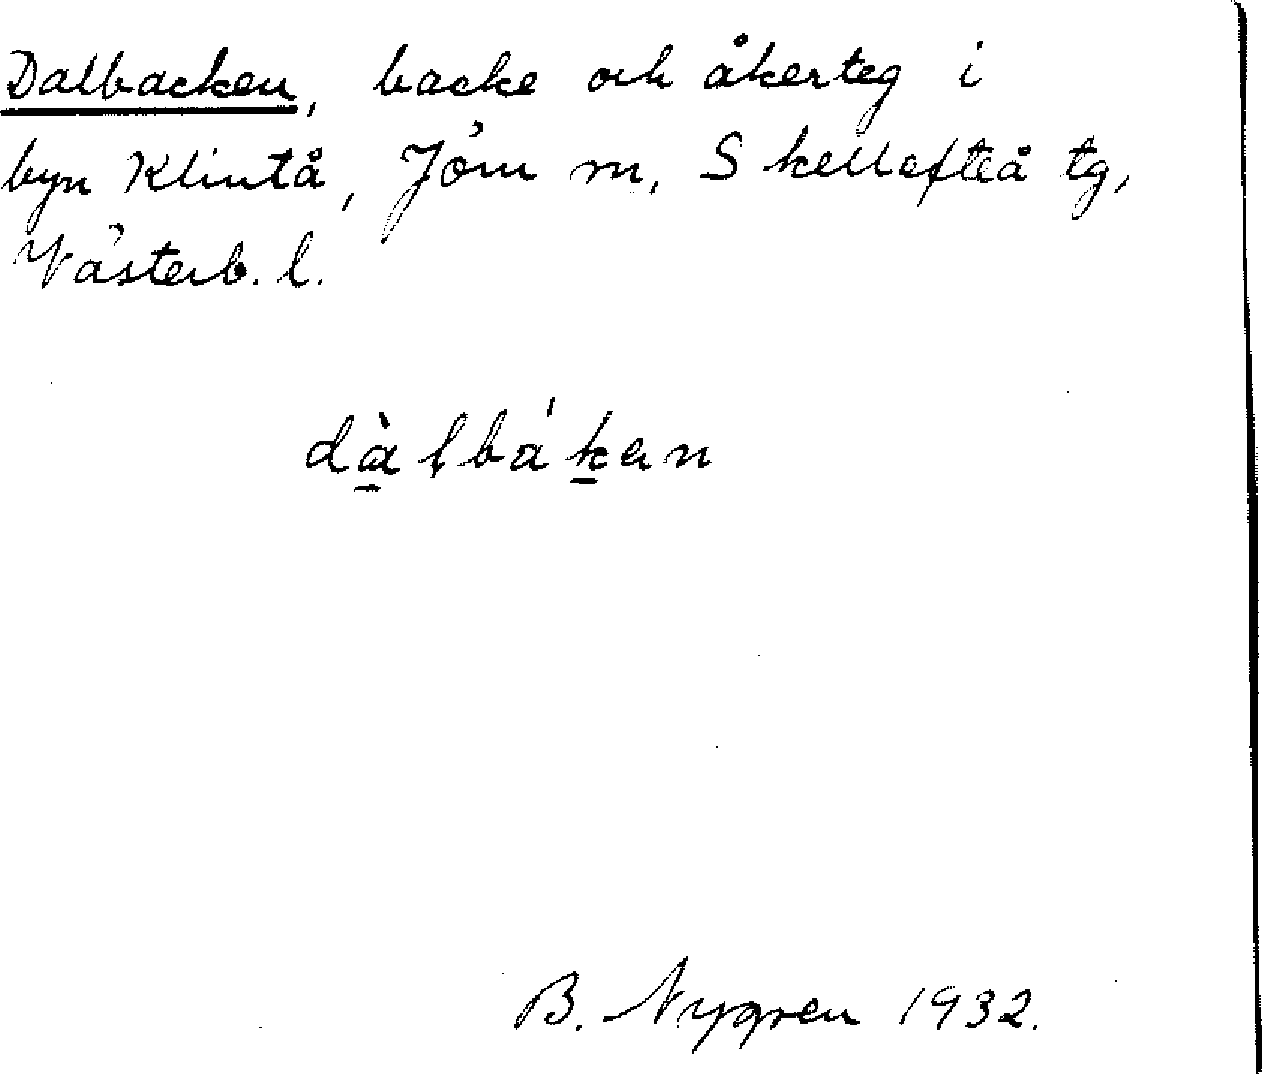 Dalbacken, backe och åkerteg i
byn Klintå, Jörn sn, Skellefteå tg,
Västerb. l.
dàlbákan
B. Nygren 1932.